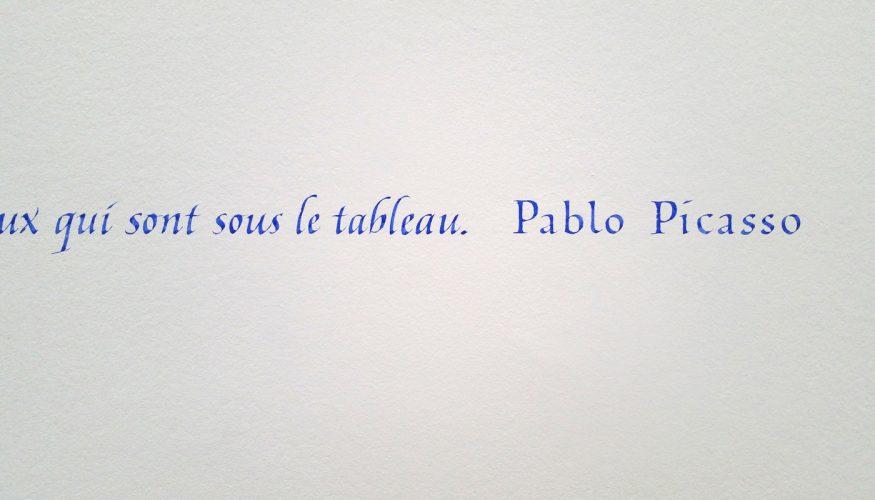 ux qui sont sous le tableau. Pablo Picasso